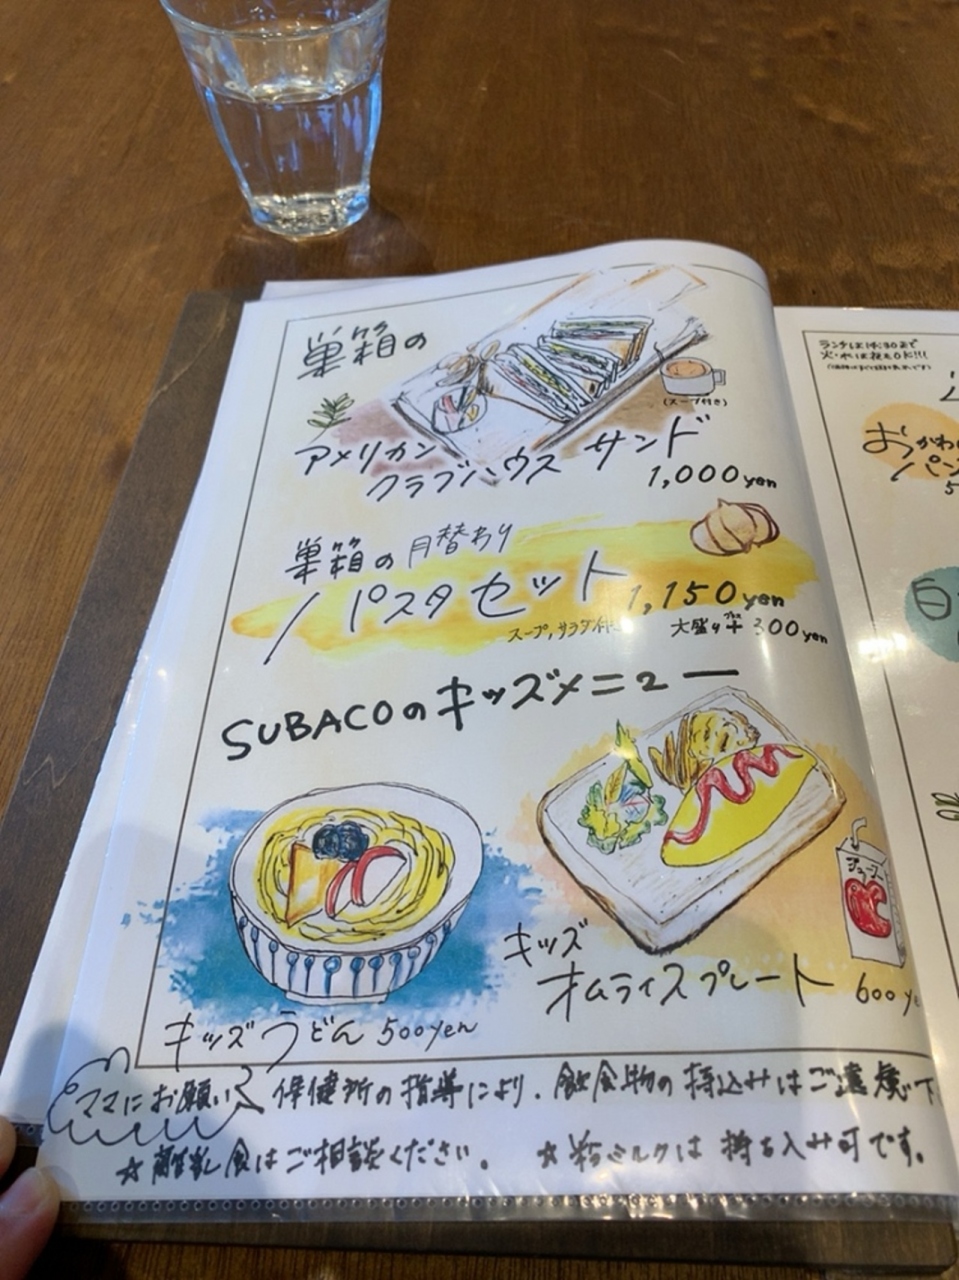 巣箱の
(スープ付き)
アメリカン
クラブハウス サンド
1,000yen
巣箱の月替わり
パスタセット 1,150yen
スープ,サラダ付
大盛り+300yen
SUBACOのキッズメニュー
ジュース
キッズ
オムライスプレート 600ye
キッズうどん 500yen
ママにお願い 保健所の指導により、飲食物の持込みはご遠慮下
☆離乳食はご相談ください。 ☆粉ミルクは持ち入み可です。
ランチは14:30まで
火・木は夜もOK!!!
おうがわ
パン
5
白